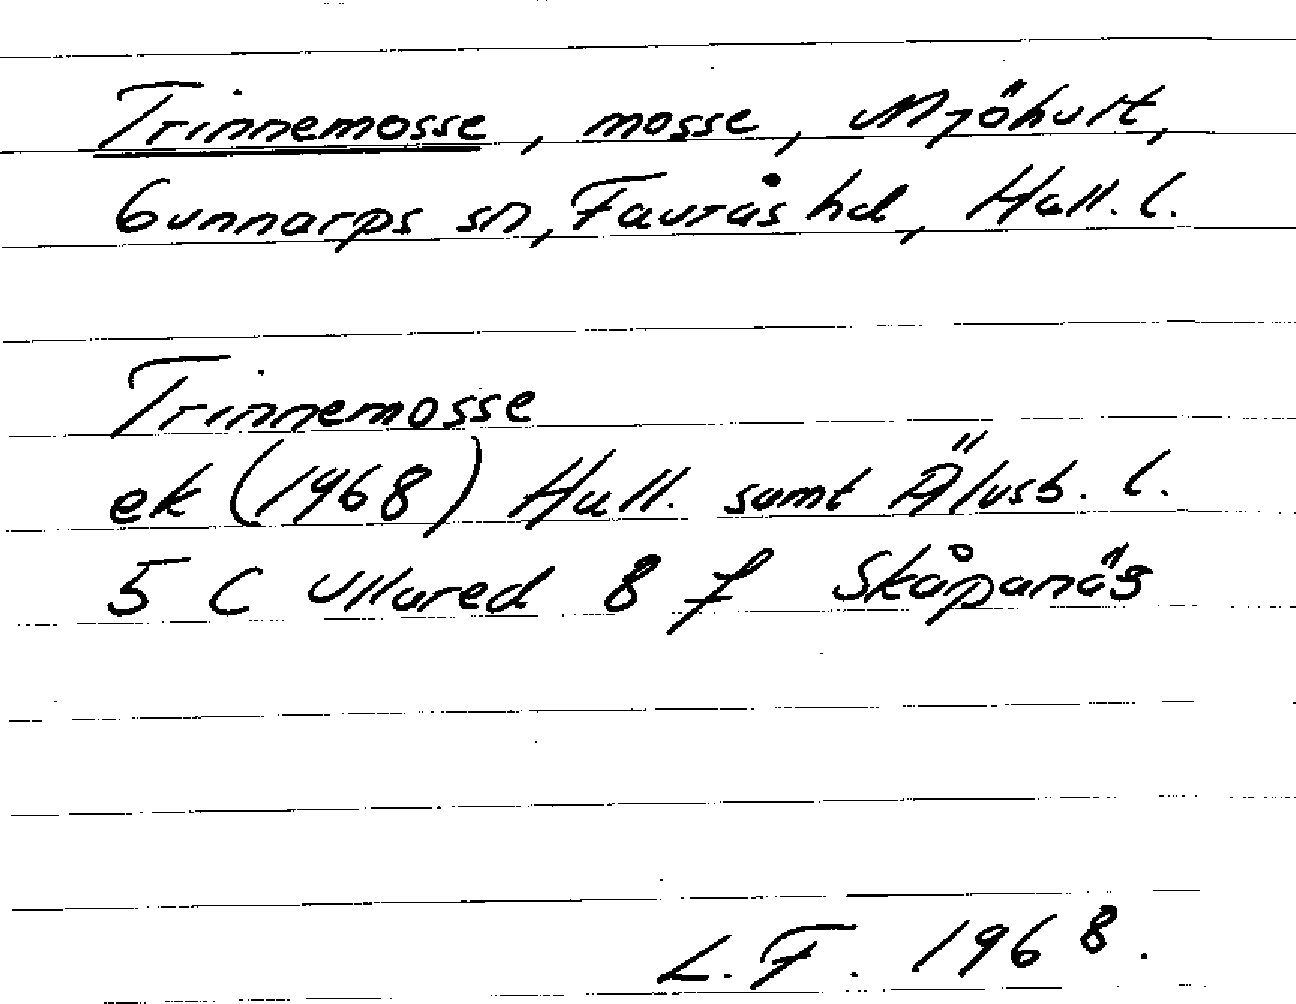 Trinnemosse, mosse, Mjöhult,
Gunnarps sn, Faurås hd, Hall. l.
Trinnemosse
ek (1968) Hall. samt Älvsb. l.
5 C Ullared 8 f Skåpanäs
L. F. 1968.